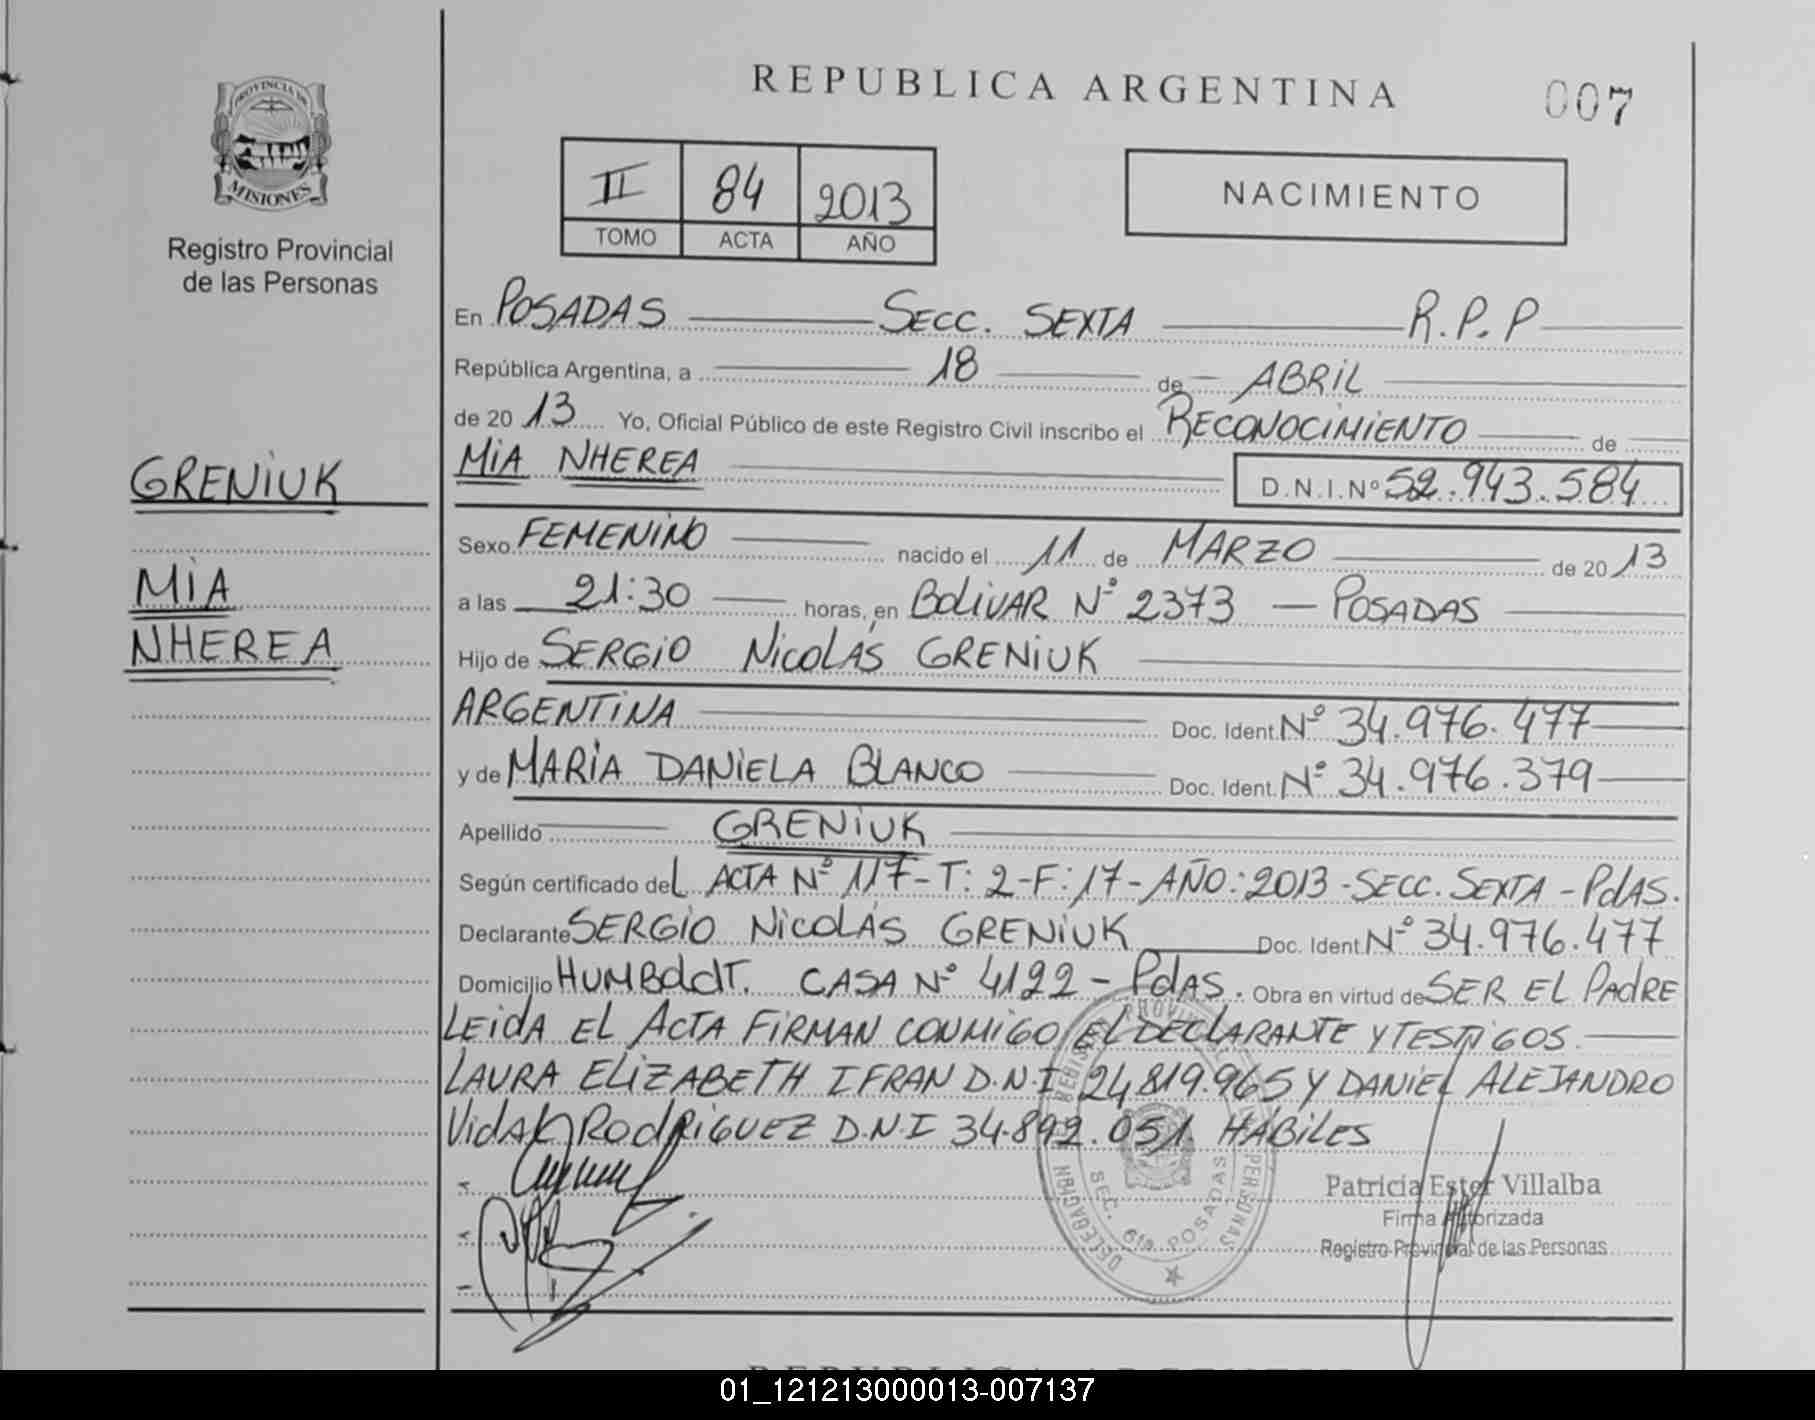 REPUBLICA ARGENTINA
007
PROVINCIA DE
MISIONES
Registro Provincial
de las Personas
II 84 2013
TOMO ACTA AÑO
NACIMIENTO
En POSADAS SECC. SEXTA R.P.P
República Argentina, a 18 de ABRIL
de 20 13 Yo, Oficial Público de este Registro Civil inscribo el RECONOCIMIENTO de
MIA NHEREA D.N.I.Nº 52.943.584
GRENIUK
MIA
NHEREA
Sexo FEMENINO nacido el 11 de MARZO de 20 13
a las 21:30 horas, en BOLIVAR Nº 2373 — POSADAS
Hijo de SERGIO NICOLÁS GRENIUK
ARGENTINA Doc. Ident. Nº 34.976.477
y de MARIA DANIELA BLANCO Doc. Ident. Nº 34.976.379
Apellido GRENIUK
Según certificado del ACTA Nº 117-T: 2-F: 17-AÑO: 2013-SECC. SEXTA-PdAS.
Declarante SERGIO NICOLÁS GRENIUK Doc. Ident. Nº 34.976.477
Domicilio HUMBOLDT. CASA Nº 4122 - PdAS. Obra en virtud de SER EL PADRE
LEIDA EL ACTA FIRMAN CONMIGO EL DECLARANTE Y TESTIGOS.
LAURA ELIZABETH IFRAN D.N.I 24.819.965 Y DANIEL ALEJANDRO
VIDAL RODRIGUEZ D.N.I 34.892.051 HABILES
DELEGACION DEL REGISTRO PROVINCIAL DE LAS PERSONAS
SEC. 6ta. POSADAS
Patricia Ester Villalba
Firma Autorizada
Registro Provincial de las Personas
01_121213000013-007137